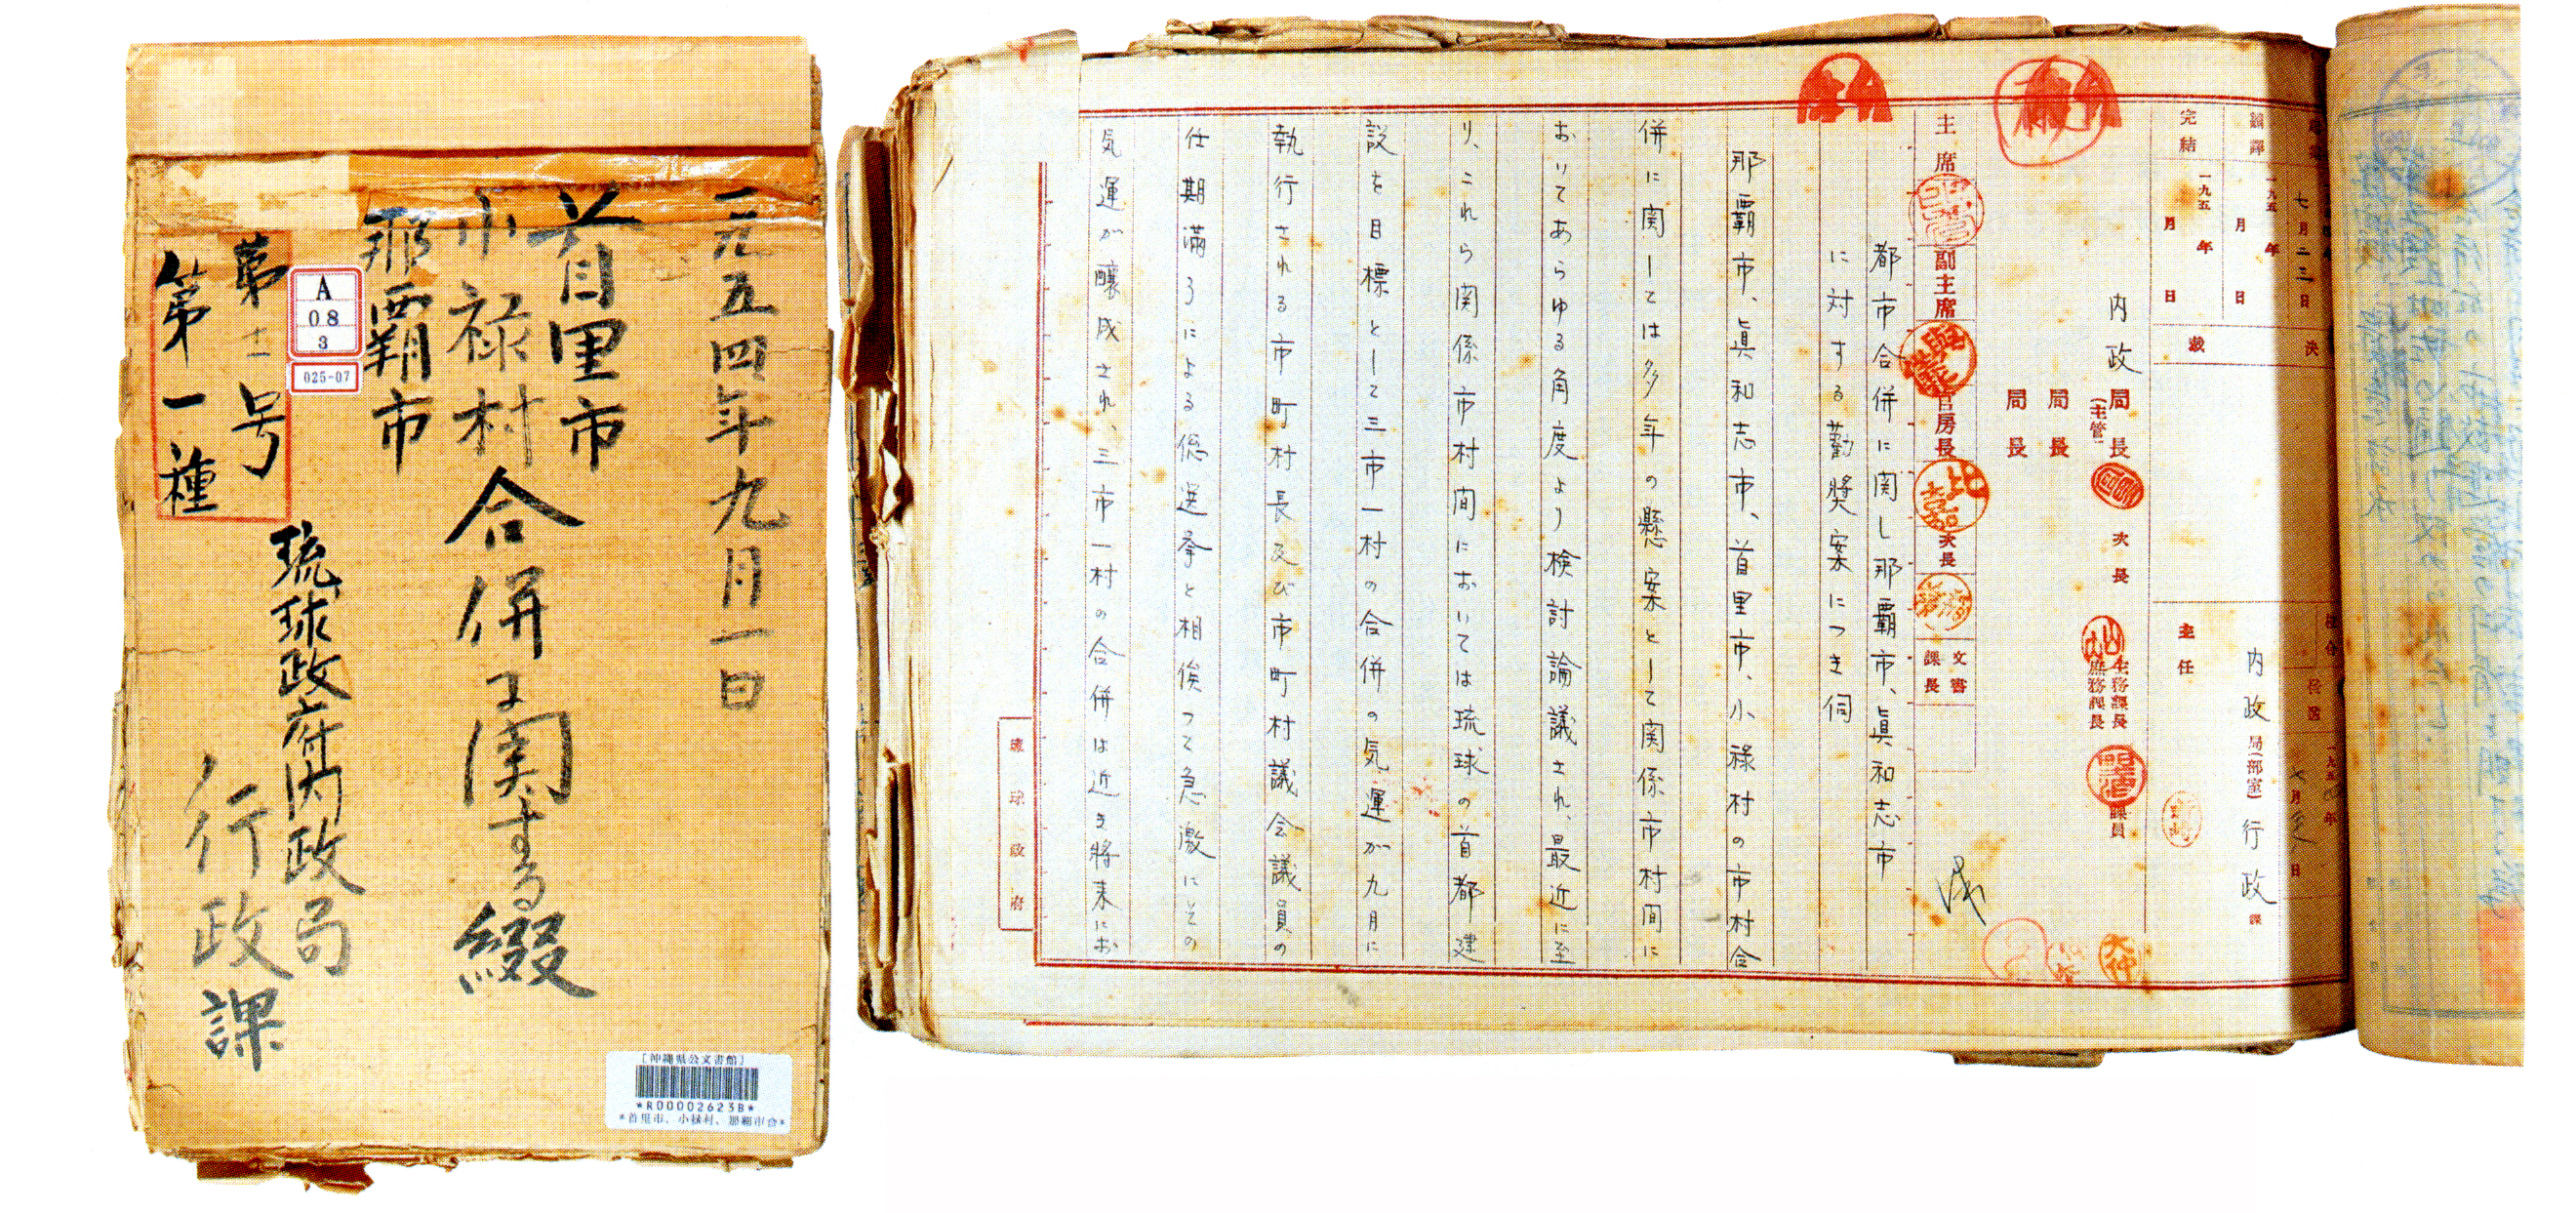 一九五四年九月一日
首里市
小禄村
那覇市
合併に関する綴
第十一号
第一種
A
08
3
025-07
琉球政府内政局
行政課
[沖縄県公文書館]
*R00002623B*
*首里市、小禄村、那覇市合*
七月二三日
飜譯 一九五 年 月 日
完結 一九五 年 月 日
決裁
主任
内政局(部室)行政課
内政局長
(主管)
次長
局長
局長
庶務課長
課員
主席
副主席
官房長
次長
文書課長
都市合併に関し那覇市、眞和志市
に対する勸奬案につき伺
那覇市、眞和志市、首里市、小祿村の市村合
併に関しては多年の懸案として関係市村間に
おいてあらゆる角度より検討論議され、最近に至
り、これら関係市村間においては琉球の首都建
設を目標として三市一村の合併の気運が九月に
執行される市町村長及び市町村議会議員の
任期満了による総選挙と相俟つて急激にその
気運が釀成され、三市一村の合併は近き將来にお
琉球政府